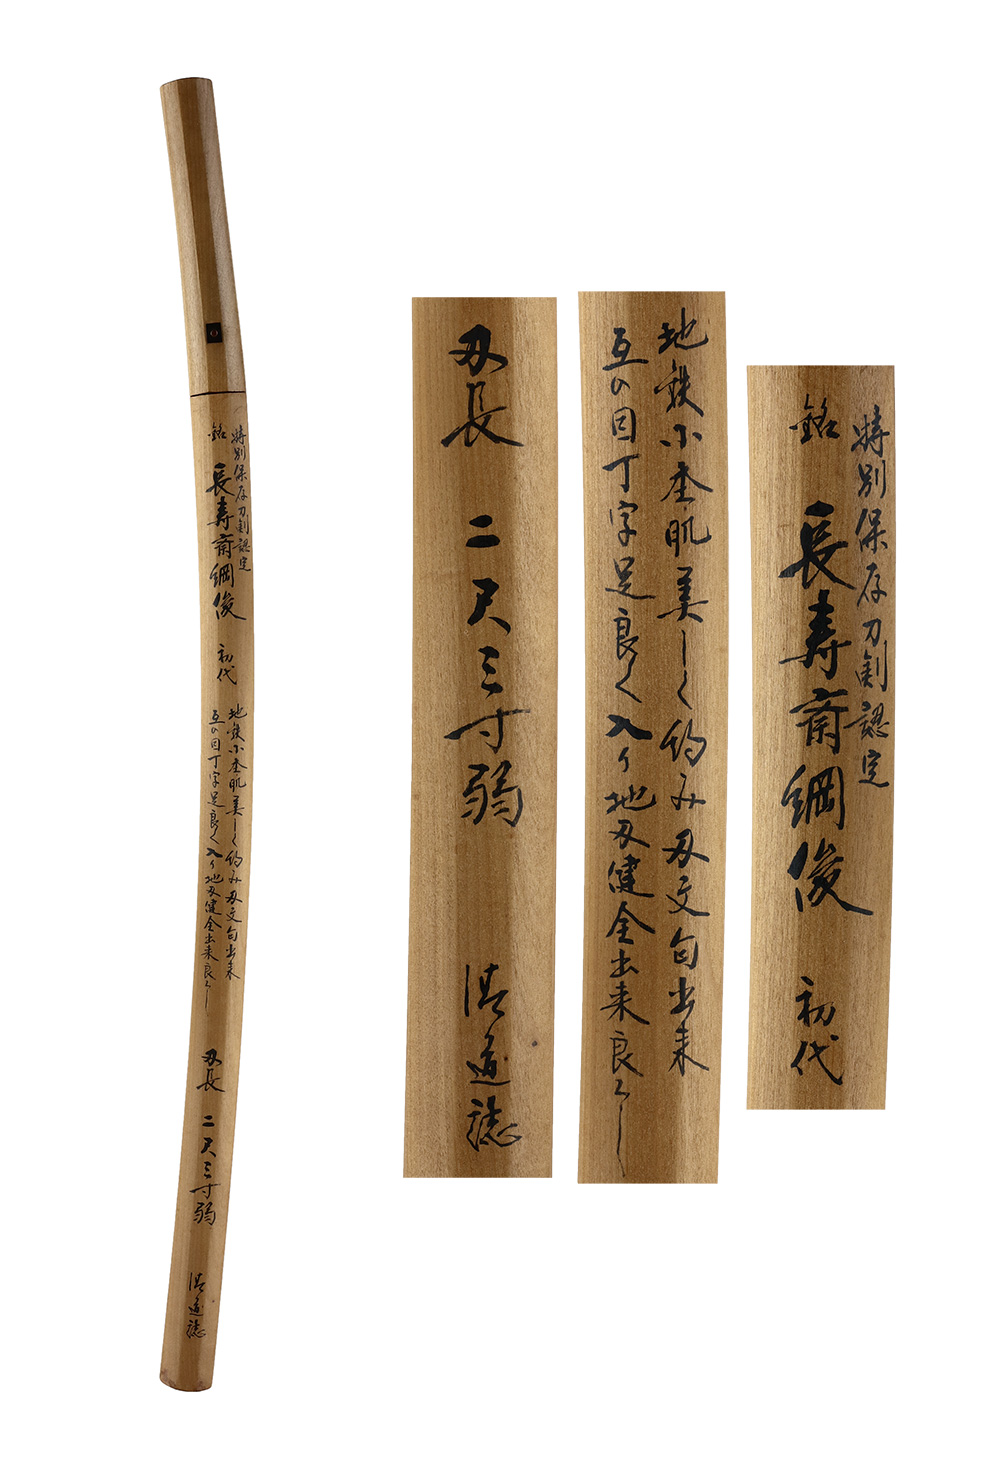 特別保存刀剣認定
銘 長寿斎綱俊 初代
地鉄小杢肌美しく約み刃文匂出来
互の目丁字足良く入り地刃健全出来良し
刃長 二尺三寸弱
誌
特別保存刀剣認定
銘 長寿斎綱俊 初代
地鉄小杢肌美しく約み刃文匂出来
互の目丁字足良く入り地刃健全出来良し
刃長 二尺三寸弱
誌